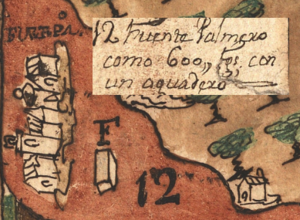 12 fuente Palmero
como 600,, fos. con
un aguadero
F
12